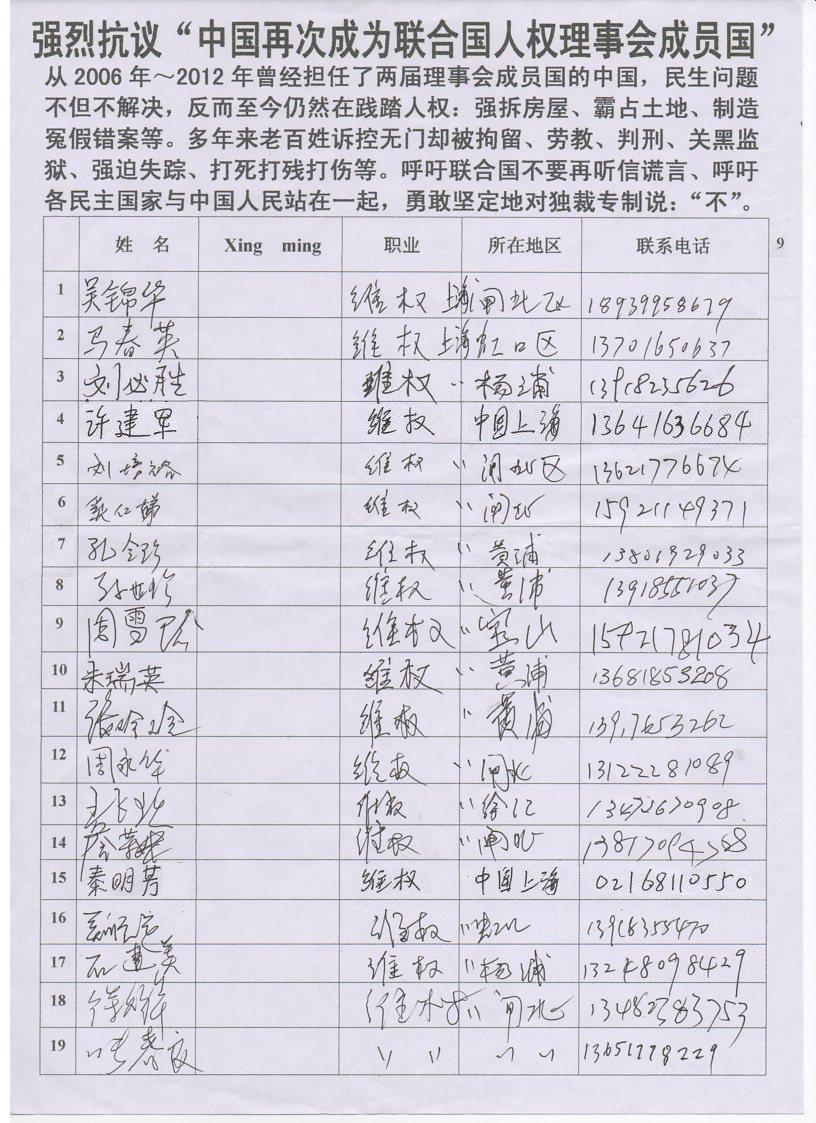 强烈抗议“中国再次成为联合国人权理事会成员国”
从 2006 年～2012 年曾经担任了两届理事会成员国的中国，民生问题
不但不解决，反而至今仍然在践踏人权：强拆房屋、霸占土地、制造
冤假错案等。多年来老百姓诉控无门却被拘留、劳教、判刑、关黑监
狱、强迫失踪、打死打残打伤等。呼吁联合国不要再听信谎言、呼吁
各民主国家与中国人民站在一起，勇敢坚定地对独裁专制说：“不”。
姓 名 Xing ming 职业 所在地区 联系电话 9
1 吴锦华 维权 上海闸北区 18939958679
2 马春英 维权 上海虹口区 13701650637
3 刘必胜 维权 〃 杨浦 13918235626
4 许建军 维权 中国上海 13641636684
5 刘培 维权 〃 闸北区 13621776674
6 维权 〃 闸北 15921149371
7 孔令珍 维权 〃 黄浦 13801929033
8 孙世珍 维权 〃 黄浦 13918551037
9 周雪 维权 〃 宝山 15421781034
10 朱瑞英 维权 〃 黄浦 13681853208
11 维权 〃 黄浦 13917653262
12 周永华 维权 〃 闸北 13122281089
13 维权 〃 徐汇
14 维权 〃 闸北
15 秦明芳 维权 中国上海 02168110550
16 维权 〃 13918355470
17 石建美 维权 〃 杨浦 13248098429
18 维权 〃 闸北 13482383753
19 春 〃 〃 〃 〃 13651778229